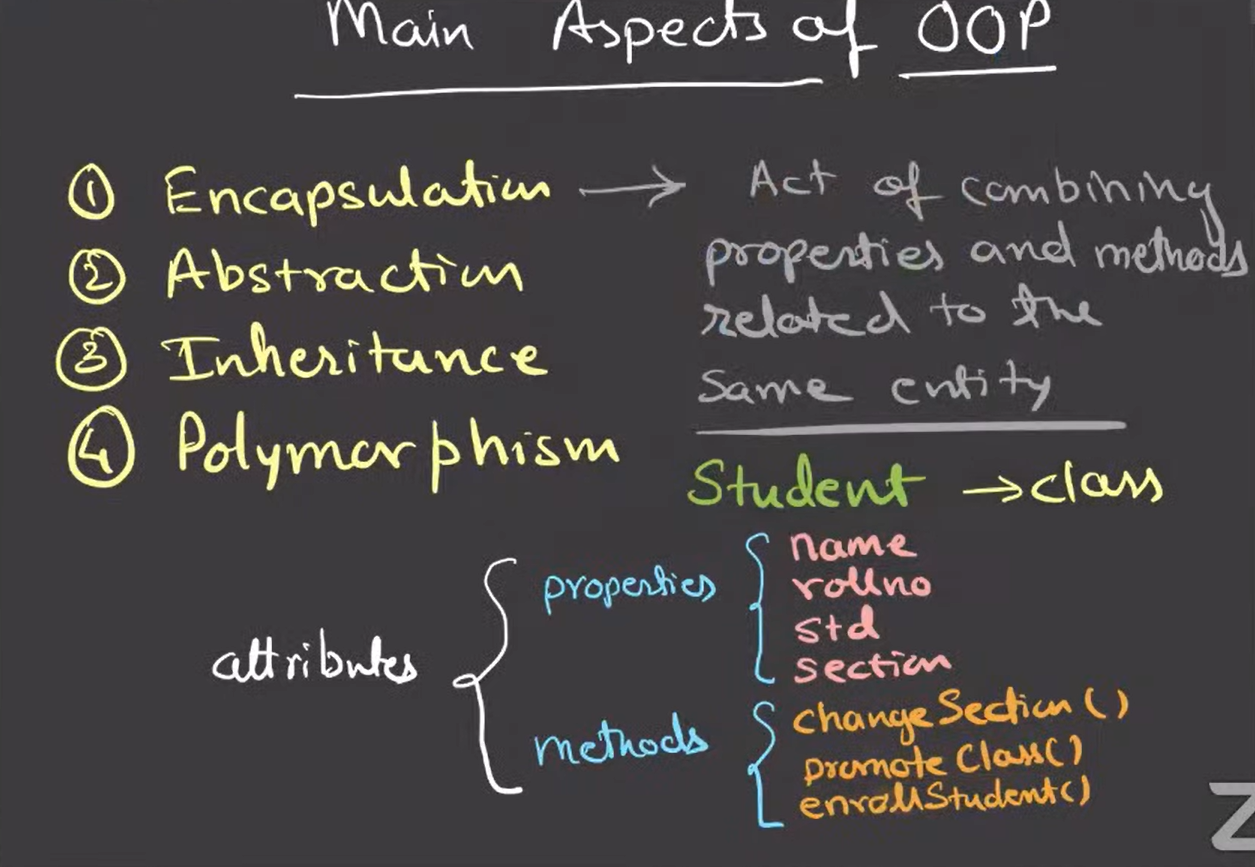 Main Aspects of OOP
① Encapsulation → Act of combining
properties and methods
② Abstraction
related to the
③ Inheritance
same entity
④ Polymorphism
Student → class
attributes
properties
name
rollno
std
section
methods
changeSection()
promoteClass()
enrollStudent()
Z